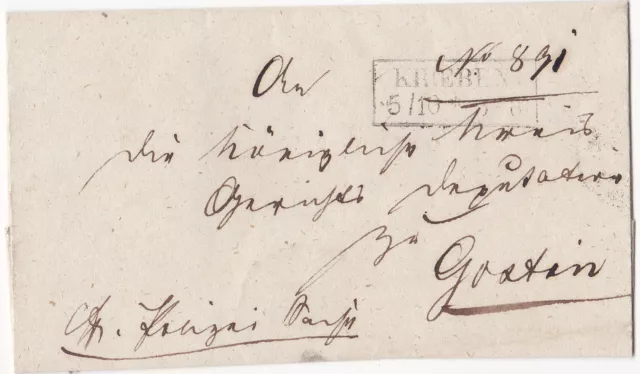 No 891
An
KROEBEN
5/10
die Königliche Kreis
Gerichts Deputation
zu
Gostin
Polizei Sache